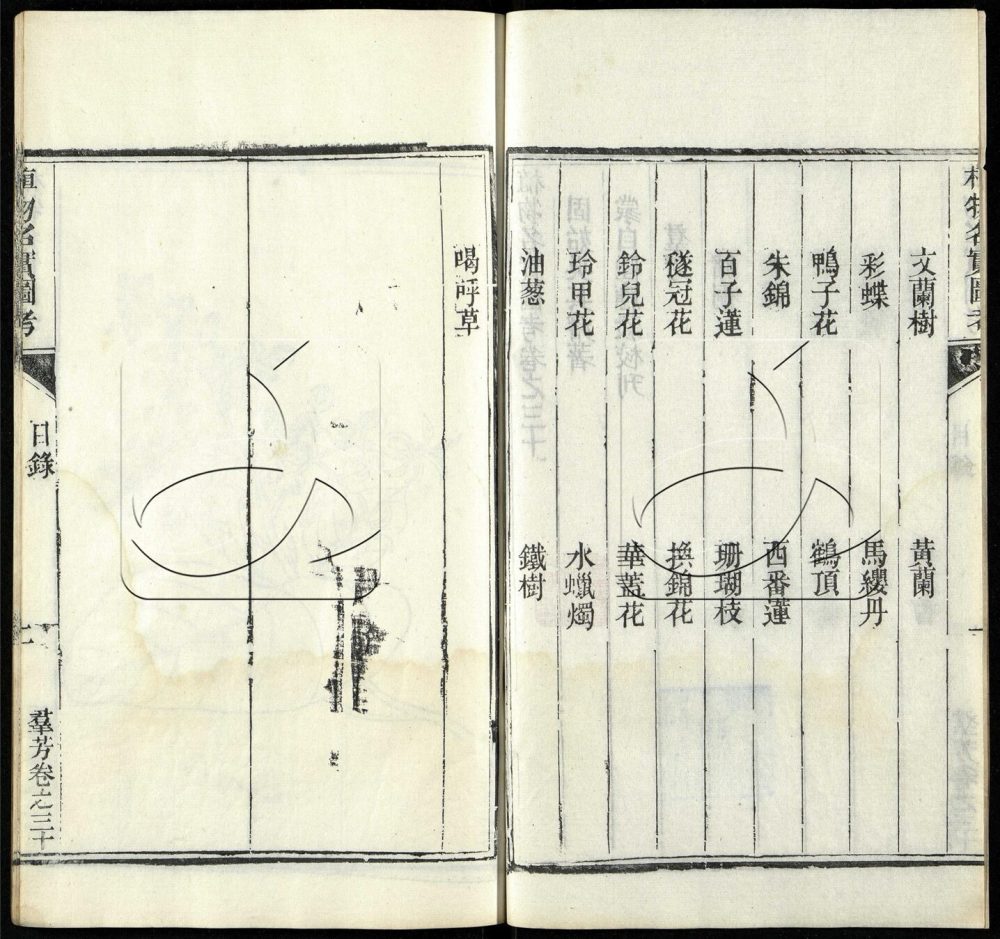 植物名實圖考
文蘭樹 黃蘭
彩蝶 馬纓丹
鴨子花 鶴頂
朱錦 西番蓮
百子蓮 珊瑚枝
穟冠花 換錦花
鈴兒花 華蓋花
玲甲花 水蠟燭
油蔥 鐵樹
喝呼草
植物名實圖考 目錄 羣芳卷之三十